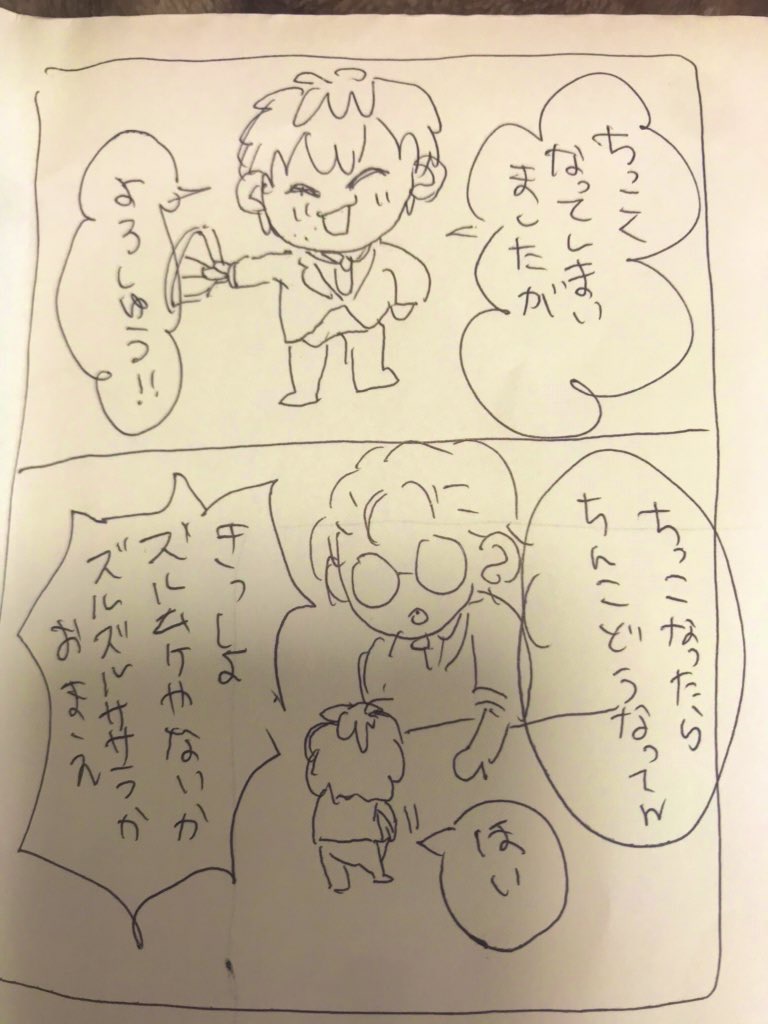 ちっこく
なってしまい
ましたが
よろしゅう!!
ちっこなったら
ちんこどうなってん
ほい
きっしょ
ズルムケやないか
ズルズルササうか
おまえ